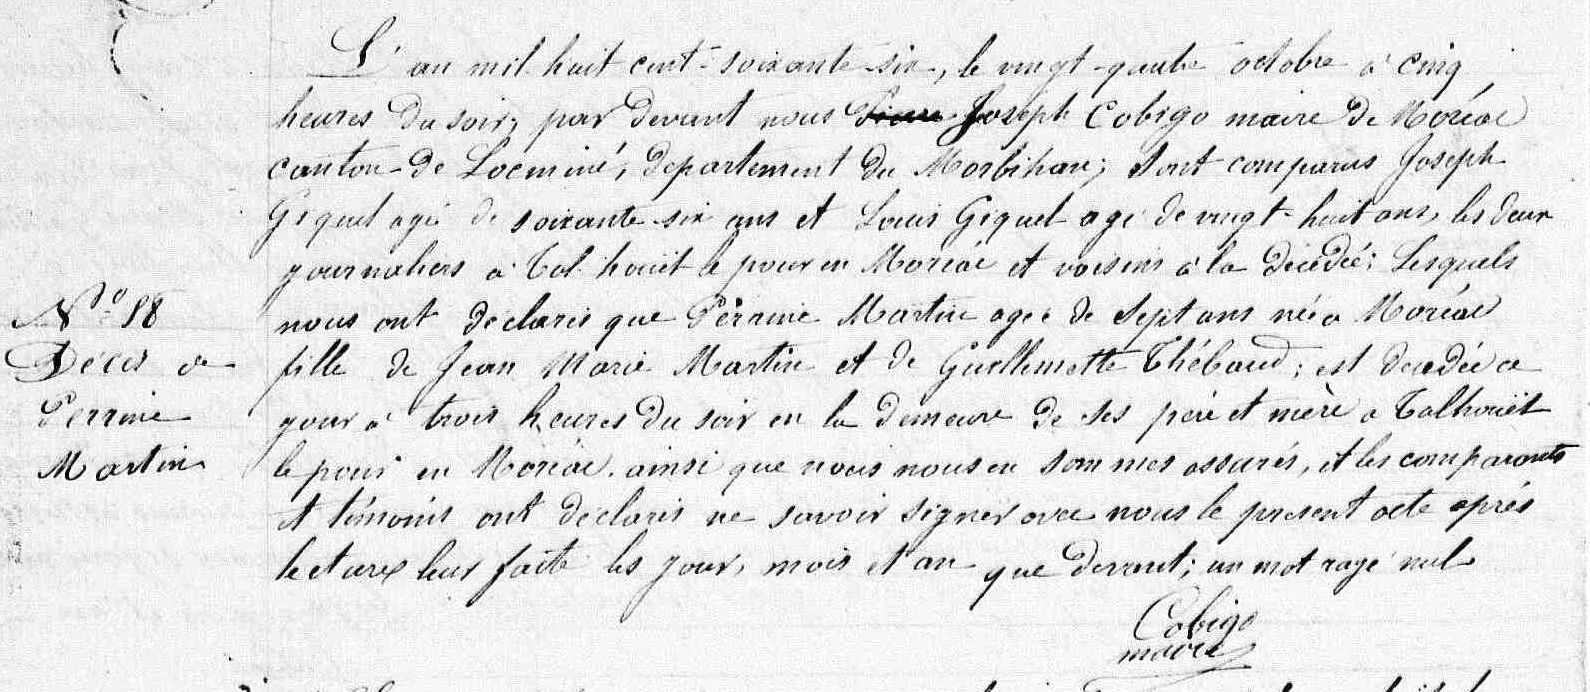 L'an mil huit cent soixante six, le vingt quatre octobre à cinq
heures du soir, par devant nous Pierre Joseph Cobigo maire de Moréac
canton de Locminé, département du Morbihan; sont comparus Joseph
Giquel agé de soixante six ans et Louis Giquel agé de vingt huit ans, les deux
journaliers à Tal houët le pour en Moréac et voisins à la décédée; Lesquels
nous ont déclarés que Perrine Martin agée de sept ans née à Moréac
fille de Jean Marie Martin et de Guillemette Thébaud; est décédée ce
jour à trois heures du soir en la demeure de ses père et mère à Talhouët
le pour en Moréac. ainsi que nous nous en sommes assurés, et les comparants
et témoins ont déclarés ne savoir signer avec nous le présent acte après
lecture leur faite les jour, mois et an que devant; un mot rayé nul
Cobigo
maire
N.º 58
Décès de
Perrine
Martin